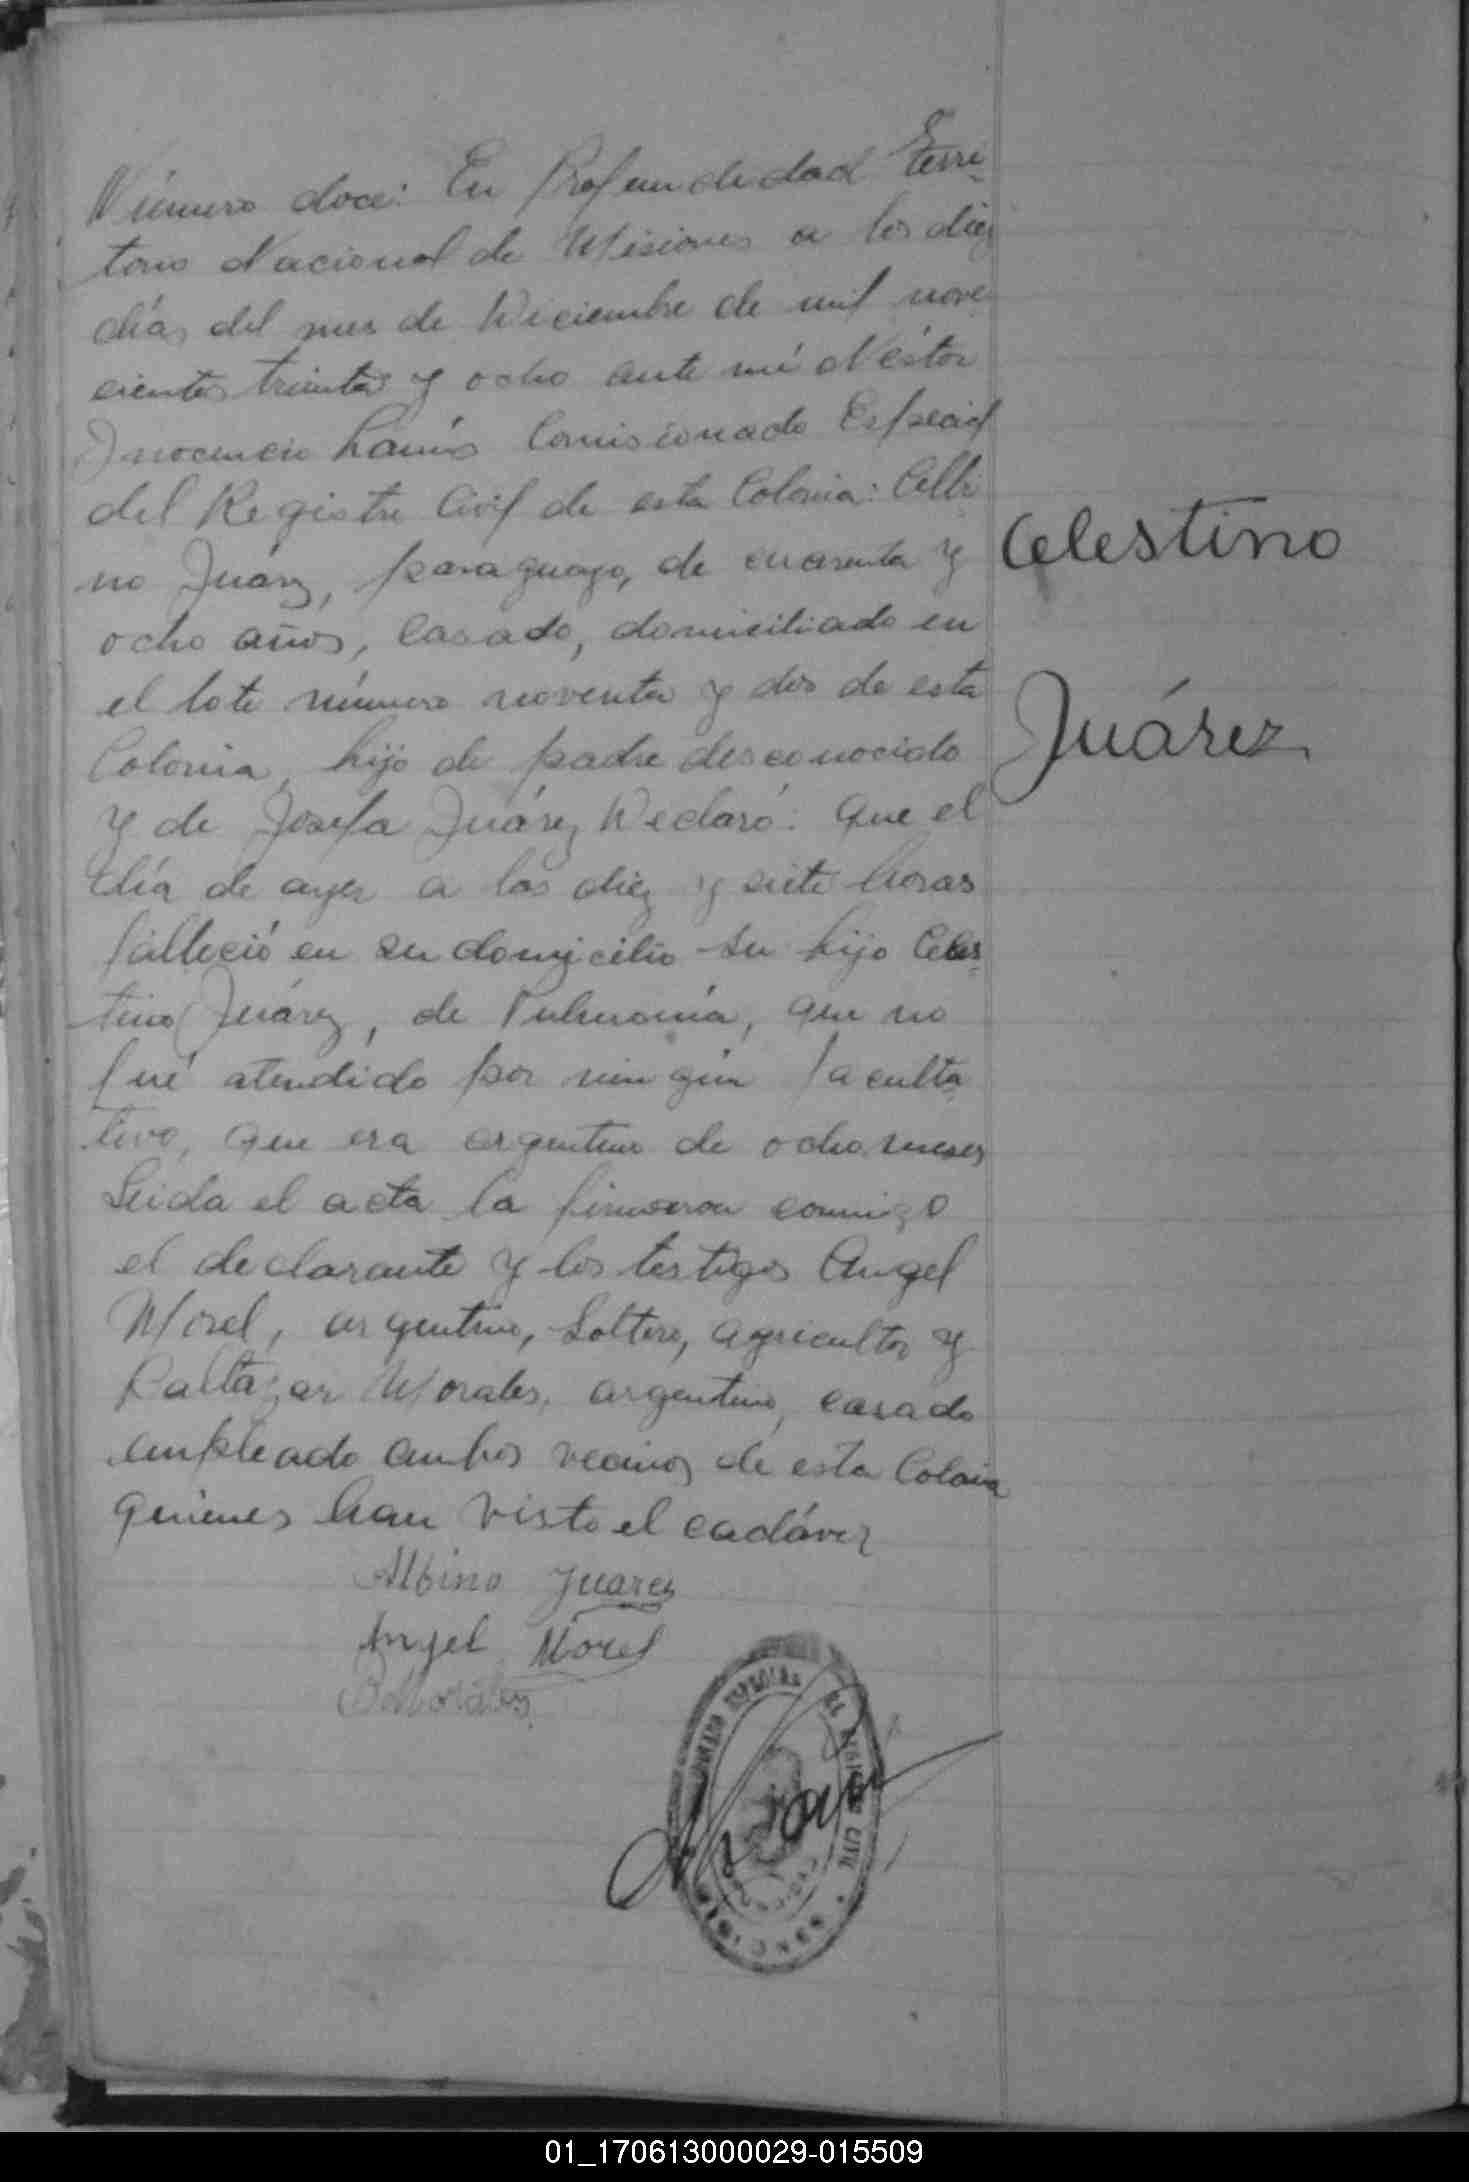 Número doce: En Profundidad Terri-
torio Nacional de Misiones a los diez
días del mes de Diciembre de mil nove
cientos treinta y ocho ante mí Néstor
Inocencio Lanús Comisionado Especial
del Registro Civil de esta Colonia:
no Juárez, paraguayo, de cuarenta y
ocho años, casado, domiciliado en
el lote número noventa y dos de esta
Colonia, hijo de padre desconocido
y de Josefa Juárez Declaró: Que el
día de ayer a las diez y siete horas
falleció en su domicilio su hijo Celes-
tino Juárez, de Pulmonía, que no
fué atendido por ningún faculta-
tivo, que era argentino de ocho meses
Leida el acta la firmaron conmigo
el declarante y los testigos Angel
Morel, argentino, Soltero, agricultor y
Baltazar Morales, argentino, casado
empleado ambos vecinos de esta Colonia
quienes han visto el cadáver
Albino Juarez
Angel Morel
B Morales
Celestino
Juárez
REGISTRO CIVIL
01_170613000029-015509